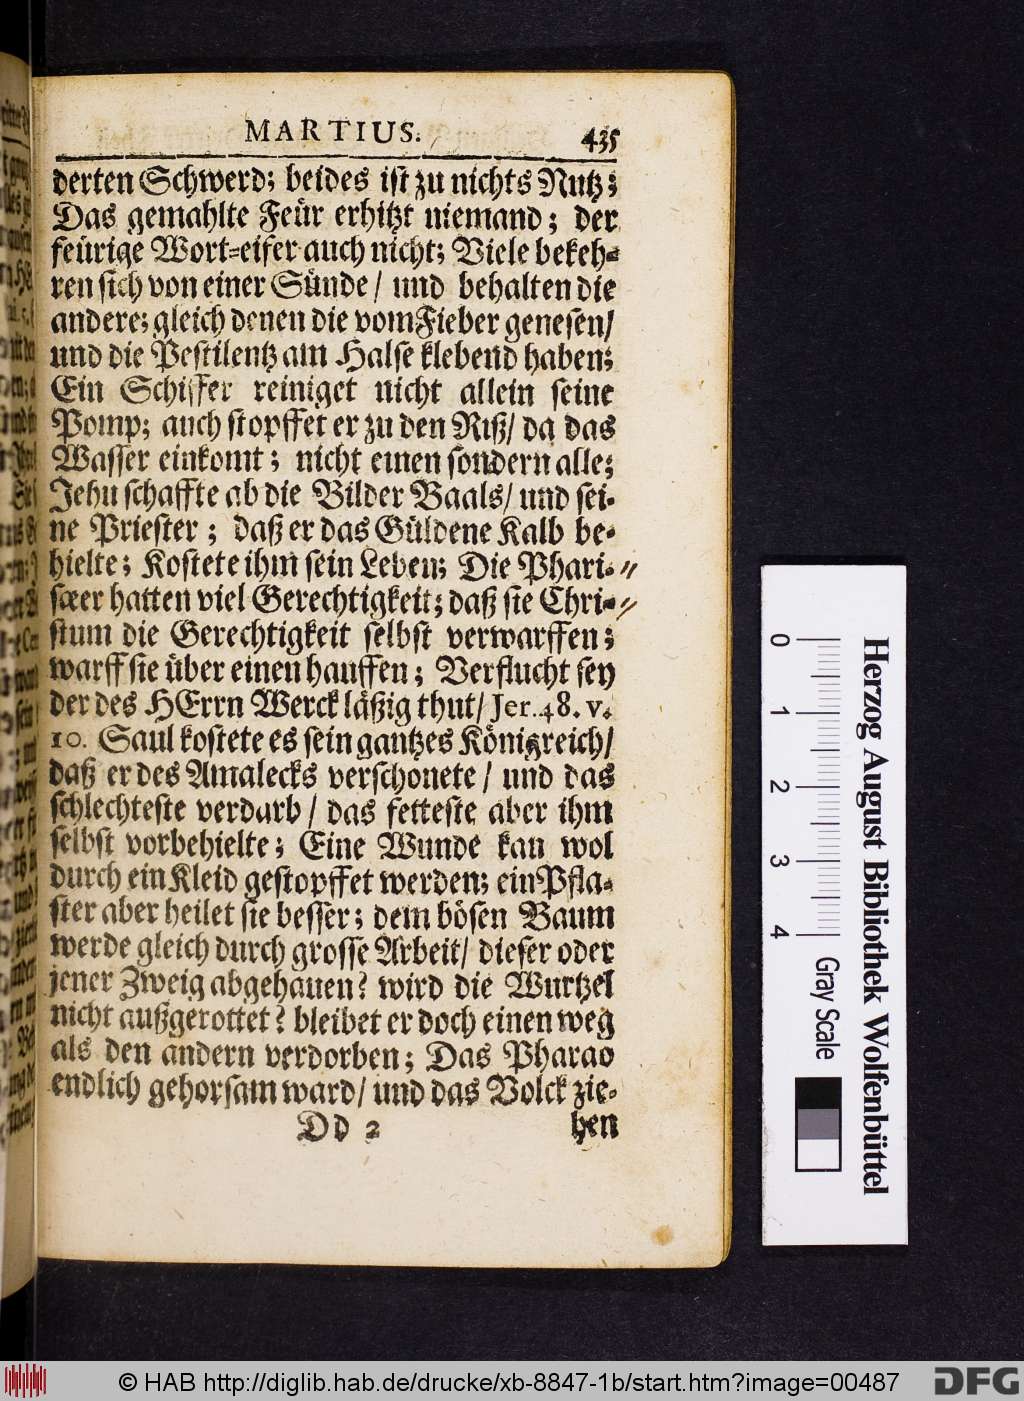 MARTIUS. 435
derten Schwerd; beides ist zu nichts Nutz;
Das gemahlte Feür erhitzt niemand; der
feürige Wort=eifer auch nicht; Viele bekeh-
ren sich von einer Sünde / und behalten die
andere; gleich denen die vom Fieber genesen /
und die Pestilentz am Halse klebend haben;
Ein Schiffer reiniget nicht allein seine
Pomp; auch stopffet er zu den Riß / da das
Wasser einkomt; nicht einen sondern alle;
Jehu schaffte ab die Bilder Baals / und sei-
ne Priester; daß er das Güldene Kalb be-
hielte; Kostete ihm sein Leben; Die Phari-
sæer hatten viel Gerechtigkeit; daß sie Chri-
stum die Gerechtigkeit selbst verwarffen;
warff sie über einen hauffen; Verflucht sey
der des HErrn Werck läßig thut / Jer. 48. v.
10. Saul kostete es sein gantzes Königreich /
daß er des Amalecks verschonete / und das
schlechteste verdarb / das fetteste aber ihm
selbst vorbehielte; Eine Wunde kan wol
durch ein Kleid gestopffet werden; ein Pfla-
ster aber heilet sie besser; dem bösen Baum
werde gleich durch grosse Arbeit / dieser oder
jener Zweig abgehauen? wird die Wurtzel
nicht außgerottet? bleibet er doch einen weg
als den andern verdorben; Das Pharao
endlich gehorsam ward / und das Volck zie-
Dd 2 hen
Herzog August Bibliothek Wolfenbüttel
0 1 2 3 4 Gray Scale
© HAB http://diglib.hab.de/drucke/xb-8847-1b/start.htm?image=00487 DFG